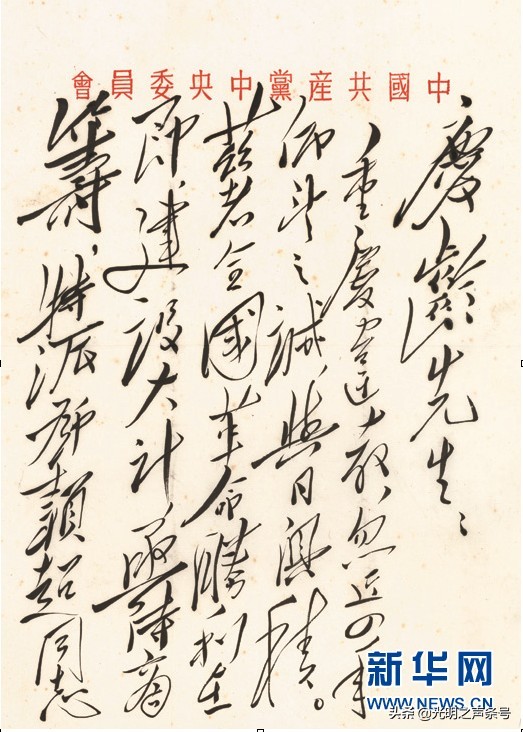 中國共産黨中央委員會
慶齡先生：
重慶違教，忽近四年
仰望之誠，與日俱積。
茲者全國革命勝利在
即，建設大計，亟待商
籌，特派鄧穎超同志
新华网
WWW.NEWS.CN
头条@光明之声条号